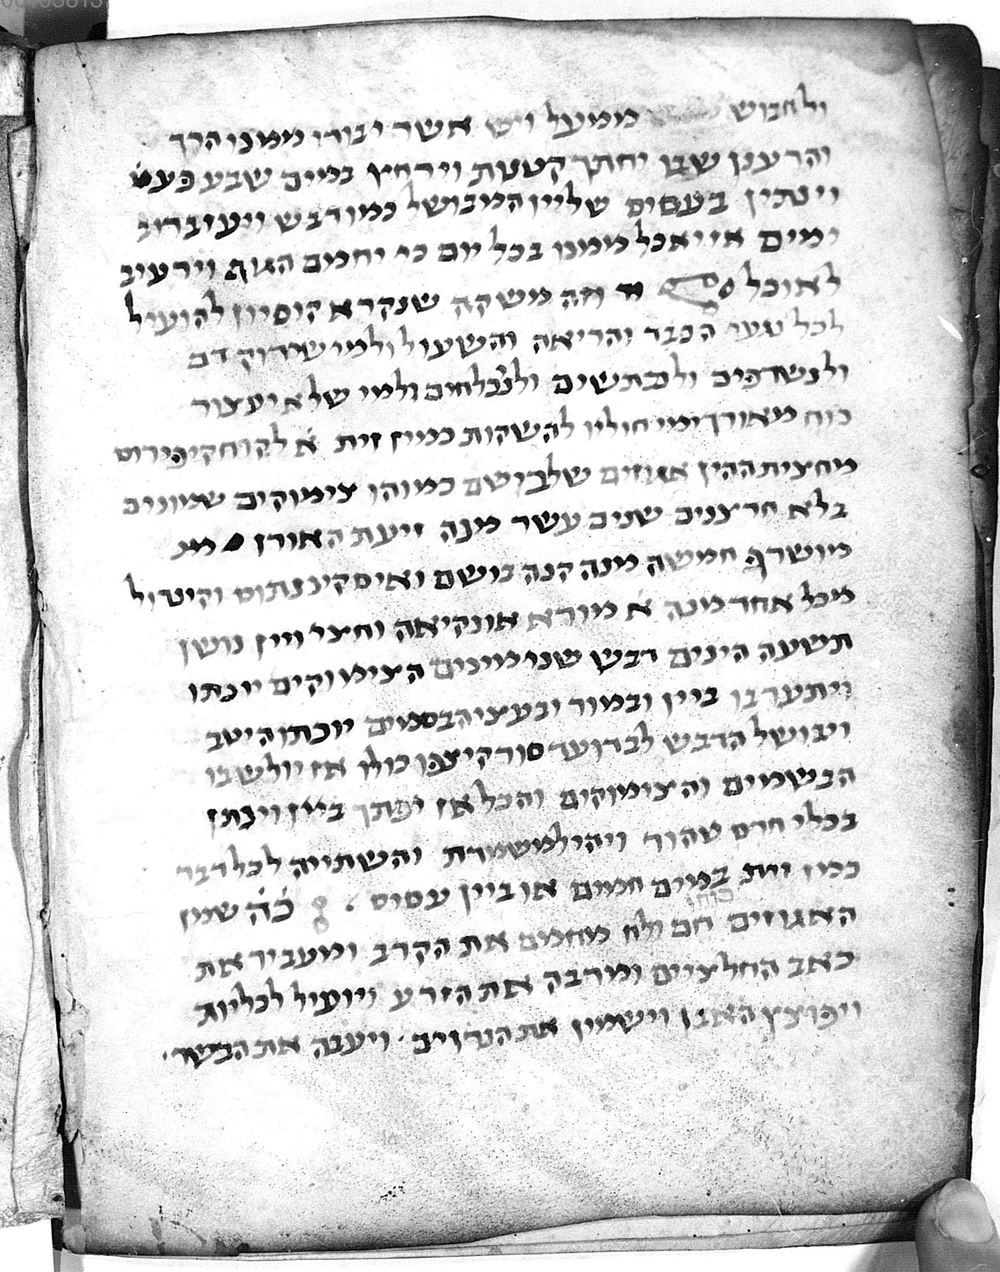 ולחבוש ממעל ויש אשר יבורו ממנו הרך
והרענן שבו יחתך קטנות וירחץ במים שבע פעמ
וינתכין בעסיס שליין המבושל כמו דבש ויעיברוב
ימים אז יאכל ממנו בכל יום כי יחמם הגוף וירעיב
לאוכל זה משקה שנקרא קוסיון להועיל
לכל נגעי הכבד והריאה והשעול ולמי שירוק דם
ולנשדפים ולכתשים ולנבלחים ולמי שלא יעצור
כוח מאורך ימי חוליו להשקות כמיין זית א לקוח קיפירוס
מחצית ההין אגוזים שלבושם כמוהו צימוקים שמונים
בלא חרצנים שנים עשר מנה זיעת האורן
מושרף חמשה מנה קנה בושם ואיסקינתוס וקיטרול
מכל אחד מנה א מורא אונקיאה וחצי ויין נושן
תשעה הינים דבש שני מינים הצימוקים יוכתו
ויתערבו ביין ובמור ובעצי הבסמים יוכתו היטב
ויבושל הדבש לברו עד סור קיצפו כולו אז יולשבו
הבשמים והצימוקים והכל אז יפתך ביין וינתן
בכלי חרס טהור ויהי למשמרת והשתייה לכל דבר
כמין זית במים חמים או ביין עסיס כה שמן
האגוזים חם ולח מחמם את הקרב ומעביר את
כאב החלציים ומרבה את הזרע ויועיל לכליות
ויפוצץ האבן וישמין את הגרזים ויעבה את הבשר